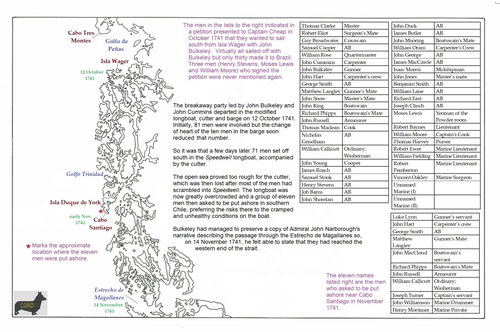 Cabo Tres
Montes
Golfo de
Peñas
Isla Wager
12 October
1741
Golfo Trinidad
Isla Duque de York
early Nov.
1741
Cabo
Santiago
Marks the approximate
location where the eleven
men were put ashore.
Estrecho de
Magallanes
14 November
1741
The men in the lists to the right indicated in
a petition presented to Captain Cheap in
October 1741 that they wanted to sail
south from Isla Wager with John
Bulkeley. Virtually all sailed with
Bulkeley but only thirty made it to Brazil.
Three men (Henry Stevens, Moses Lewis
and William Moore) who signed the
petition were never mentioned again.
The breakaway party led by John Bulkeley and
John Cummins departed in the modified
longboat, cutter and barge on 12 October 1741.
Initially, 81 men were involved but the change
of heart of the ten men in the barge soon
reduced that number.
So it was that a few days later 71 men set off
south in the Speedwell longboat, accompanied
by the cutter.
The open sea proved too rough for the cutter,
which was then lost after most of the men had
scrambled into Speedwell. The longboat was
now greatly overcrowded and a group of eleven
men asked to be put ashore in southern
Chile, preferring the risks there to the cramped
and unhealthy conditions on the boat.
Bulkeley had managed to preserve a copy of Admiral John Narborough's
narrative describing the passage through the Estrecho de Magallanes so,
on 14 November 1741, he felt able to state that they had reached the
western end of the strait.
The eleven names
listed right are the men
who asked to be put
ashore near Cabo
Santiago in November
1741.
Thomas Clarke Master
Robert Eliot Surgeon's Mate
Guy Broadwater Coxswain
Samuel Cooper AB
William Rose Quartermaster
John Cummins Carpenter
John Bulkeley Gunner
John Hart Carpenter's crew
George Smith AB
Matthew Langley Gunner's Mate
John Snow Master's Mate
John King Boatswain
Richard Phipps Boatswain's Mate
John Russell Armourer
Thomas Maclean Cook
Nicholas AB
William Callicutt Ordinary;
Washerman
John Young Cooper
James Roach AB
Samuel Stook AB
Henry Stevens AB
Job Barns AB
John Shorelan AB
John Duck AB
James Butler AB
John Mooring Boatswain's Mate
William Oram Carpenter's Crew
John George AB
James MacCawle AB
Isaac Morris Midshipman
John Jones Master's mate
Benjamin Smith AB
William Lane AB
Richard East AB
Joseph Clinch AB
Moses Lewis Yeoman of the
Powder room
Robert Baynes Lieutenant
William Moore Captain's Cook
Thomas Harvey Purser
Robert Ewer Marine Lieutenant
William Fielding Marine Lieutenant
Robert Marine Lieutenant
Pemberton
Vincent Oakley Marine Surgeon
Unnamed
Marine (I)
Unnamed
Marine (II)
Luke Lyon Gunner's servant
John Hart Carpenter's crew
George Smith AB
Matthew Gunner's Mate
Langley
John MacCloud Boatswain's
servant
Richard Phipps Boatswain's Mate
John Russell Armourer
William Callicutt Ordinary;
Washerman
Joseph Turner Captain's servant
John Williamson Marine Drummer
Henry Mortimer Marine Private